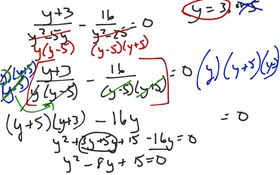 y+3/(y²-5y) - 16/(y²-25) = 0
y = 3
y(y-5) (y-5)(y+5)
y+3/(y(y-5)) - 16/((y-5)(y+5)) = 0 (y)(y+5)(y-5)
(y+5)(y+3) - 16y = 0
y² + 3y+5y + 15 - 16y = 0
y² - 8y + 15 = 0